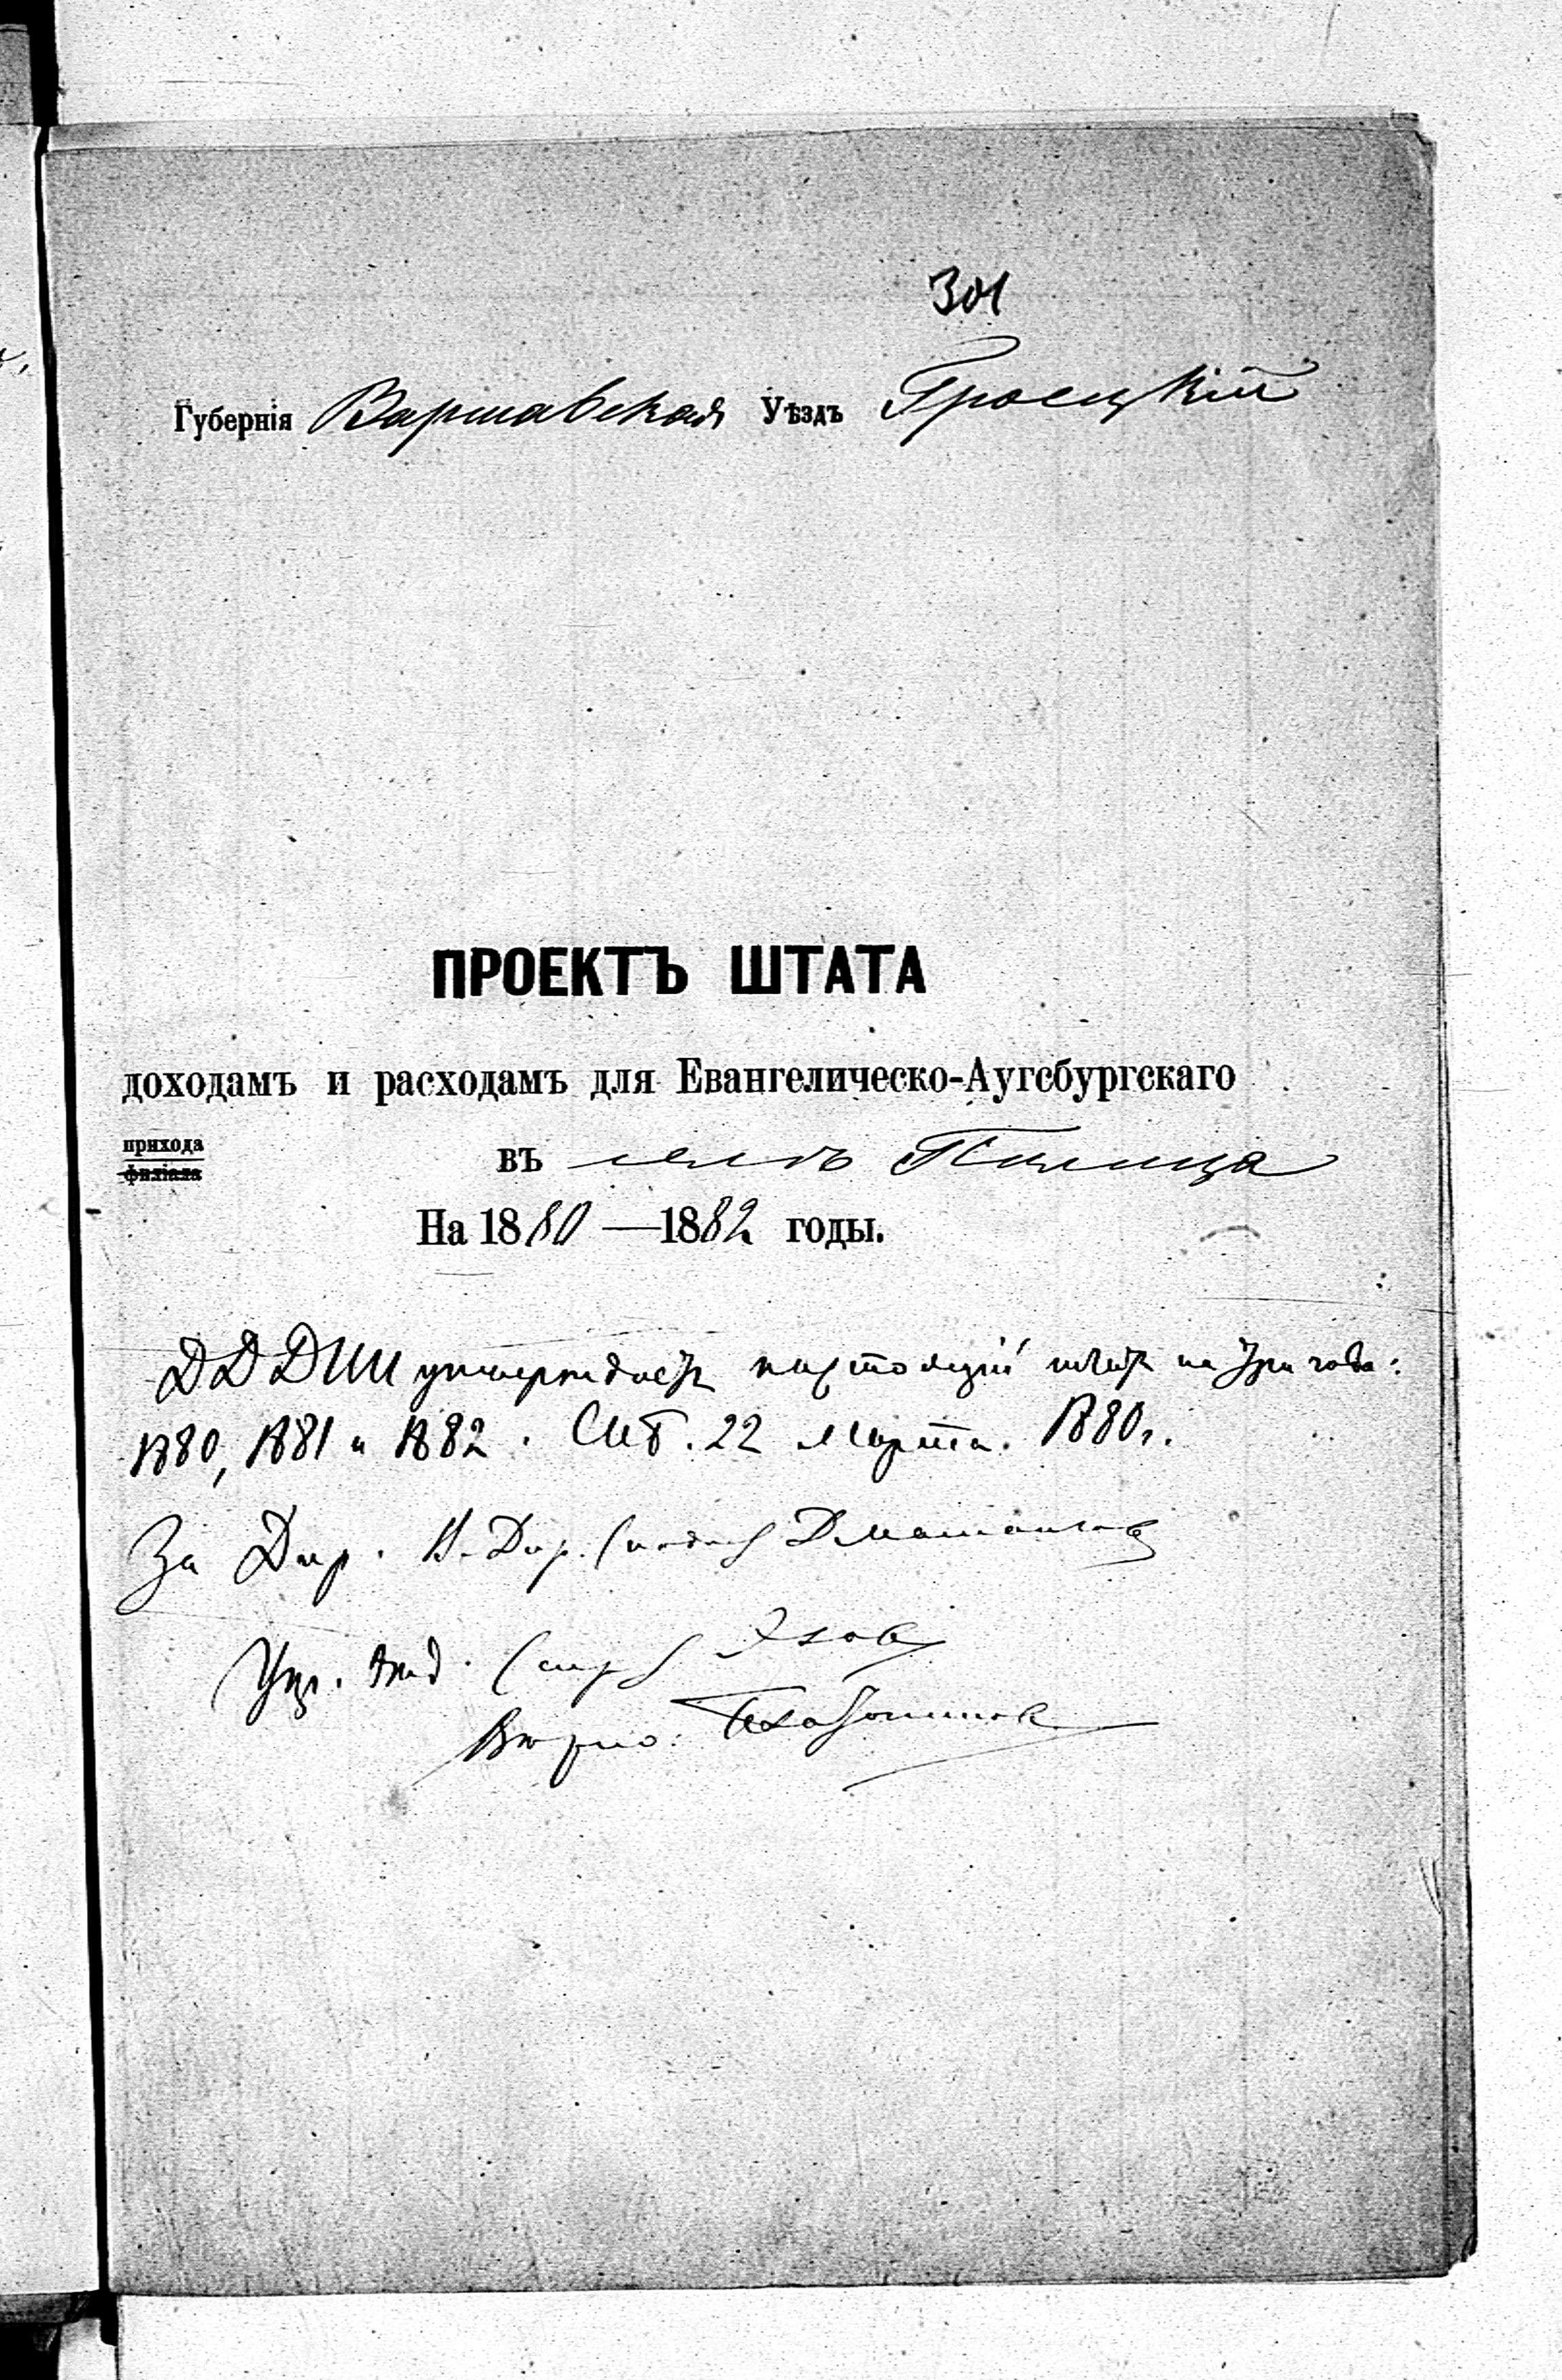 301
Губернія Варшавская Уѣздъ Гроецкій
ПРОЕКТЪ ШТАТА
доходамъ и расходамъ для Евангелическо-Аугсбургскаго
прихода
филіала
въ селѣ Пилица
На 1880—1882 годы.
ДДДИИ утверждаетъ настоящій штатъ на три года:
1880, 1881 и 1882. СПб. 22 Марта 1880 г.
За Дир. В. Дир. (подп.)
Упр. отд. (
Вѣрно: